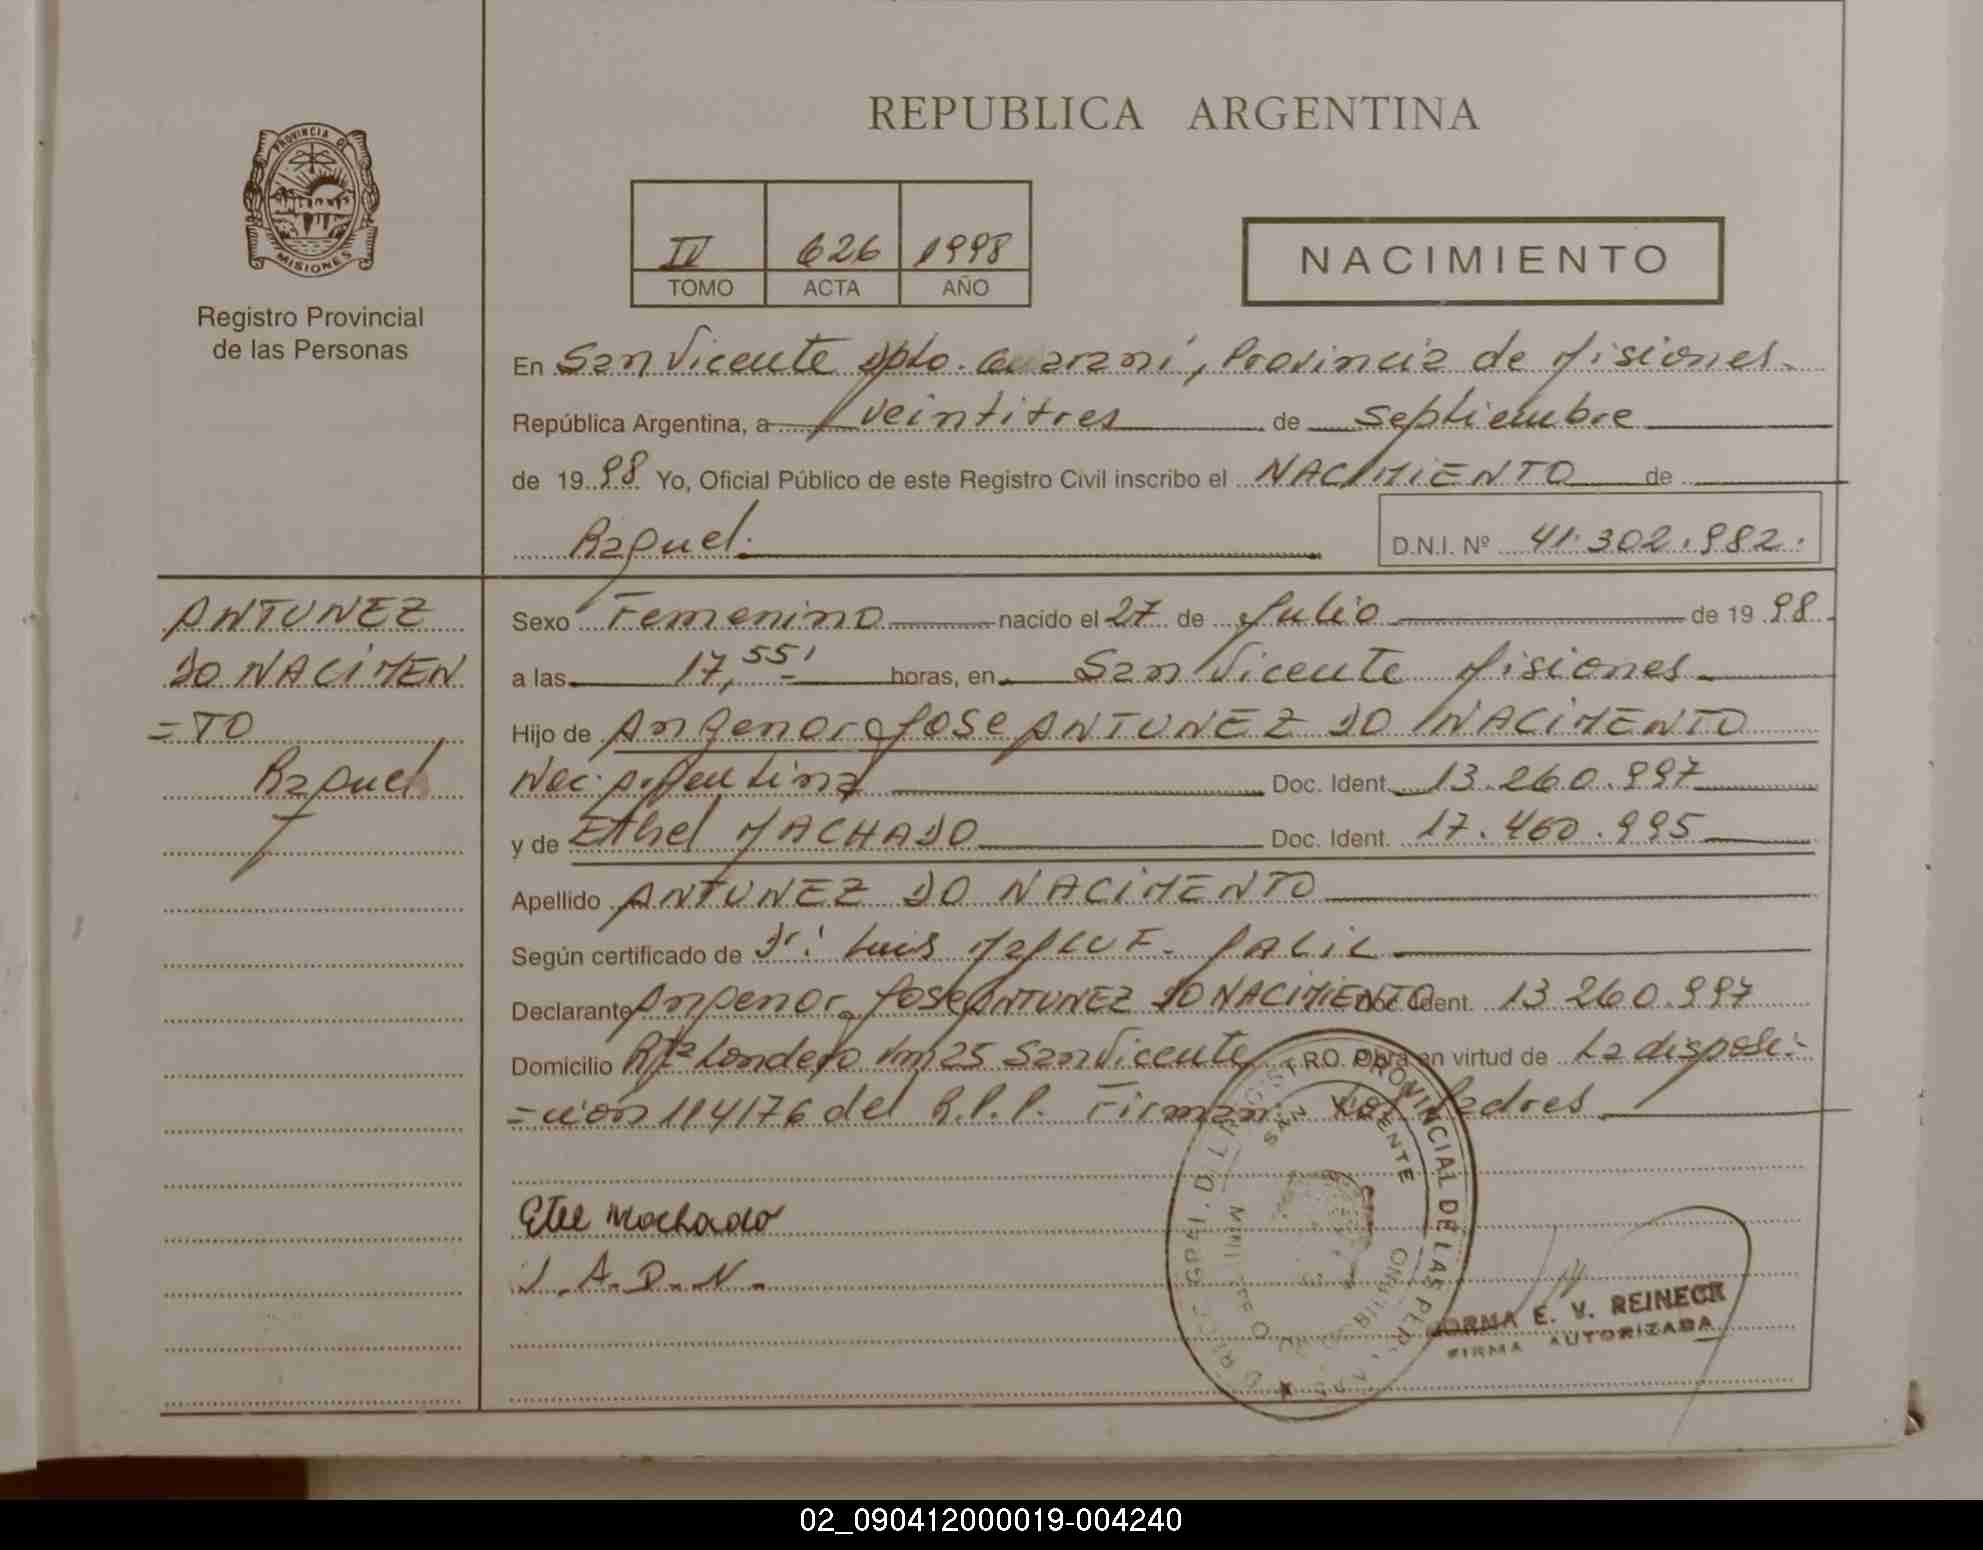 REPUBLICA ARGENTINA
PROVINCIA DE
MISIONES
Registro Provincial
de las Personas
IV 626 1998
TOMO ACTA AÑO
NACIMIENTO
En San Vicente Dpto. Guaraní, Provincia de Misiones.
República Argentina, a veintitres de Septiembre
de 1998 Yo, Oficial Público de este Registro Civil inscribo el NACIMIENTO de
Raquel. D.N.I. Nº 41.302.982.
ANTUNEZ
DO NACIMEN
=TO
Raquel
Sexo Femenino nacido el 27 de Julio de 1998.
a las 17,55' horas, en San Vicente Misiones
Hijo de Angenor Jose ANTUNEZ DO NACIMENTO
Nac. Argentina Doc. Ident. 13.260.997
y de Ethel MACHADO Doc. Ident. 17.460.995
Apellido ANTUNEZ DO NACIMENTO
Según certificado de Dr. Luis JALIL
Declarante Angenor Jose ANTUNEZ DO NACIMIENTO Doc. Ident. 13 260.997
Domicilio Rta Londero km 25 San Vicente Obra en virtud de La disposi-
=ción 114/76 del R.P.P. Firman: los Padres
Etel Machado
J.A.D.N.
REGISTRO PROVINCIAL DE LAS PERSONAS
SAN VICENTE
NORMA E. V. REINECK
FIRMA AUTORIZADA
02_090412000019-004240